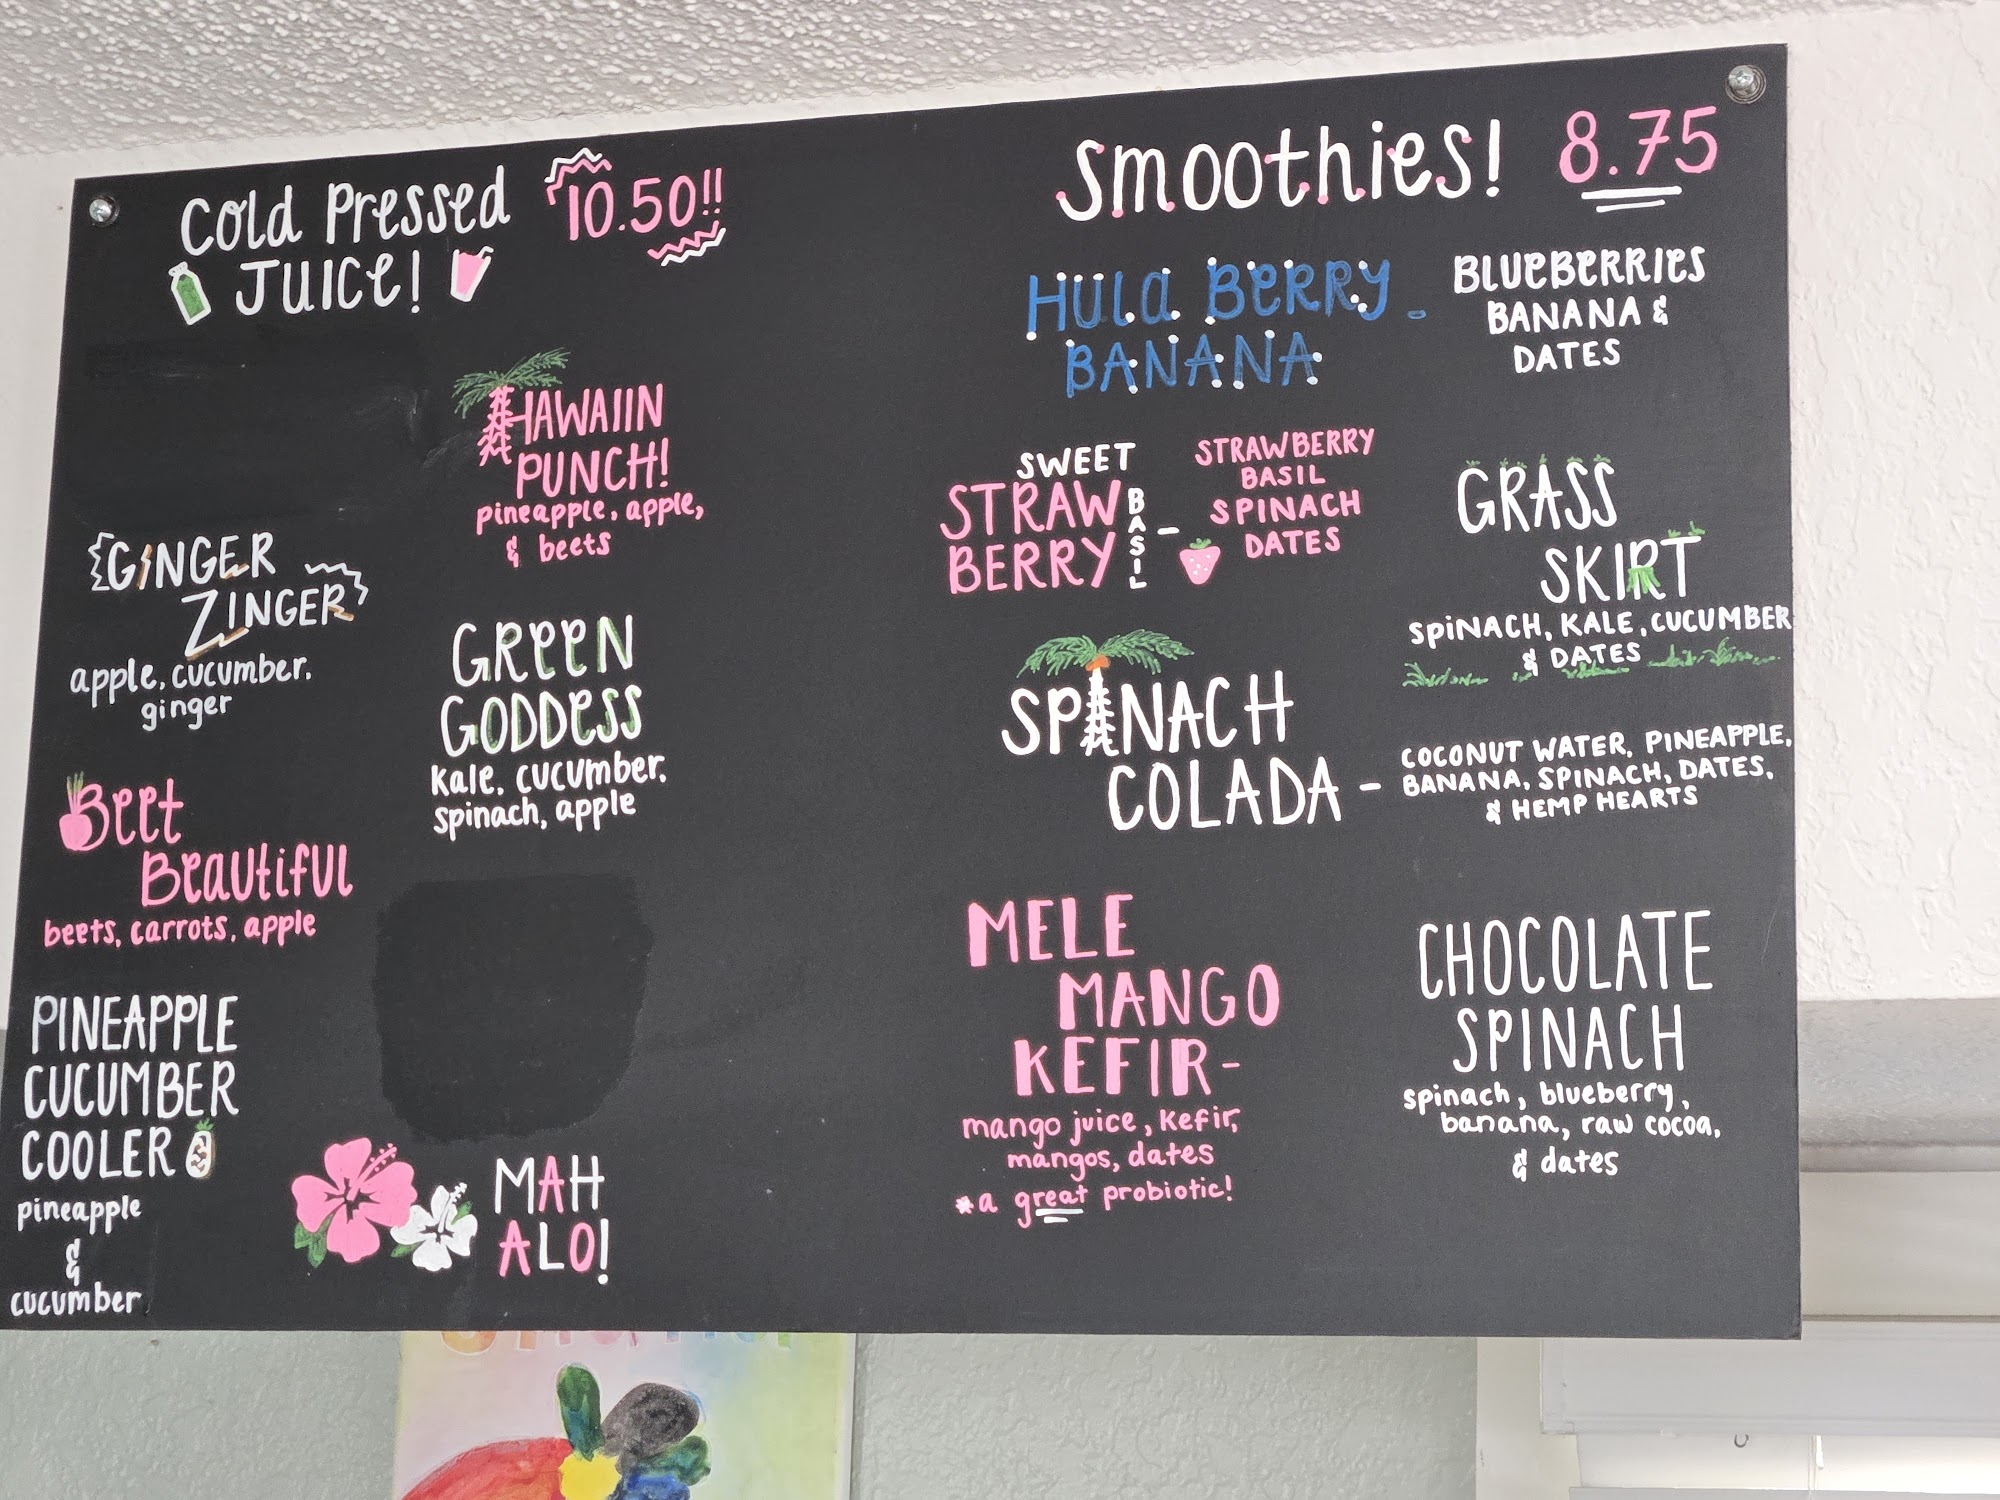 Cold Pressed
Juice!
10.50!!
HAWAIIN
PUNCH!
pineapple, apple,
& beets
GINGER
ZINGER
apple, cucumber,
ginger
GREEN
GODDESS
kale, cucumber,
spinach, apple
Beet
Beautiful
beets, carrots, apple
PINEAPPLE
CUCUMBER
COOLER
pineapple
&
cucumber
MAH
ALO!
Smoothies! 8.75
HULA BERRY -
BANANA
BLUEBERRIES
BANANA &
DATES
SWEET
STRAW
BERRY
BASIL -
STRAWBERRY
BASIL
SPINACH
DATES
GRASS
SKIRT
SPINACH, KALE, CUCUMBER
& DATES
SPINACH
COLADA -
COCONUT WATER, PINEAPPLE,
BANANA, SPINACH, DATES,
& HEMP HEARTS
MELE
MANGO
KEFIR-
mango juice, kefir,
mangos, dates
*a great probiotic!
CHOCOLATE
SPINACH
spinach, blueberry,
banana, raw cocoa,
& dates